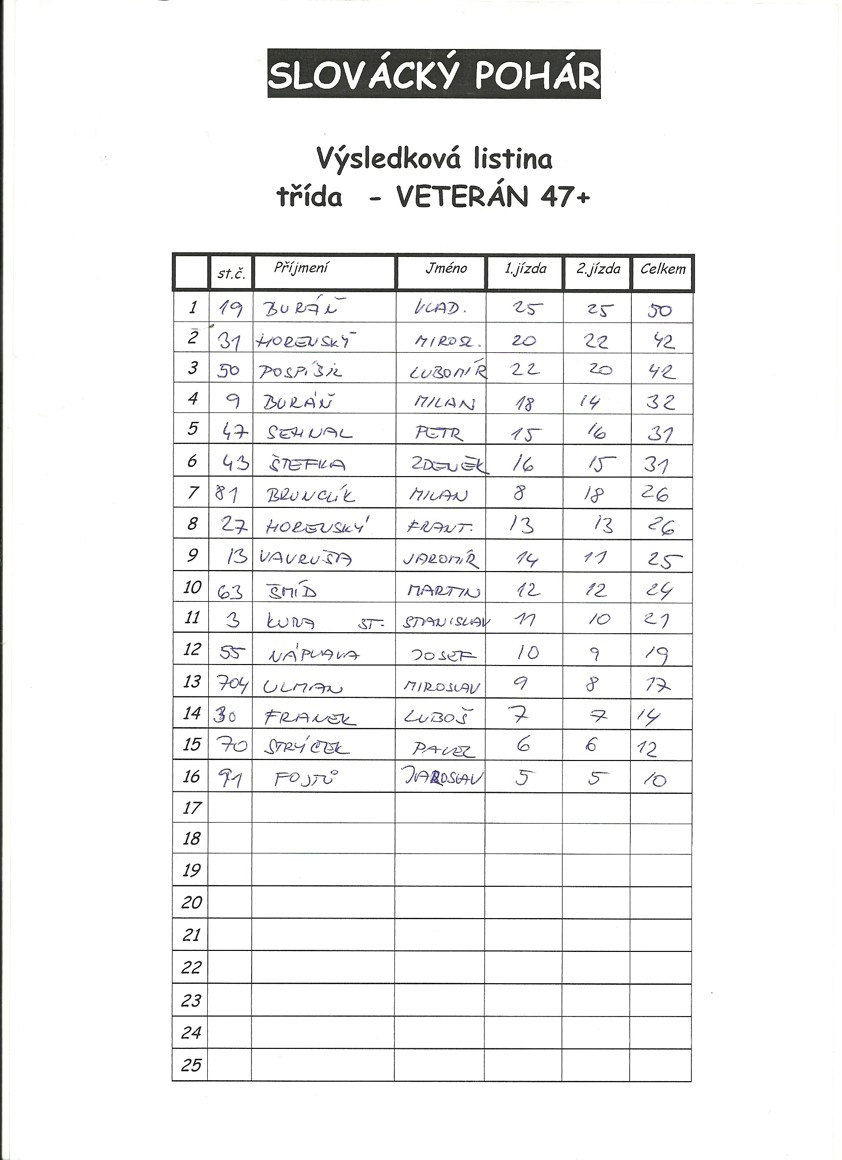 SLOVÁCKÝ POHÁR
Výsledková listina
třída - VETERÁN 47+
st.č. Příjmení Jméno 1.jízda 2.jízda Celkem
1 19 BURÁŇ VLAD. 25 25 50
2 31 HORENSKÝ MIROSL. 20 22 42
3 50 POSPÍŠIL LUBOMÍR 22 20 42
4 9 BURÁŇ MILAN 18 14 32
5 47 SEHNAL PETR 15 16 31
6 43 ŠTEFKA ZDENĚK 16 15 31
7 81 BRUNCLÍK MILAN 8 18 26
8 27 HORENSKÝ FRANT. 13 13 26
9 13 VAVRUŠA JAROMÍR 14 11 25
10 63 ŠMÍD MARTIN 12 12 24
11 3 KURA ST. STANISLAV 11 10 21
12 55 NÁPLAVA JOSEF 10 9 19
13 704 ULMAN MIROSLAV 9 8 17
14 30 FRANEK LUBOŠ 7 7 14
15 70 STRÝČEK PAVEL 6 6 12
16 91 FOJTŮ JAROSLAV 5 5 10
17
18
19
20
21
22
23
24
25